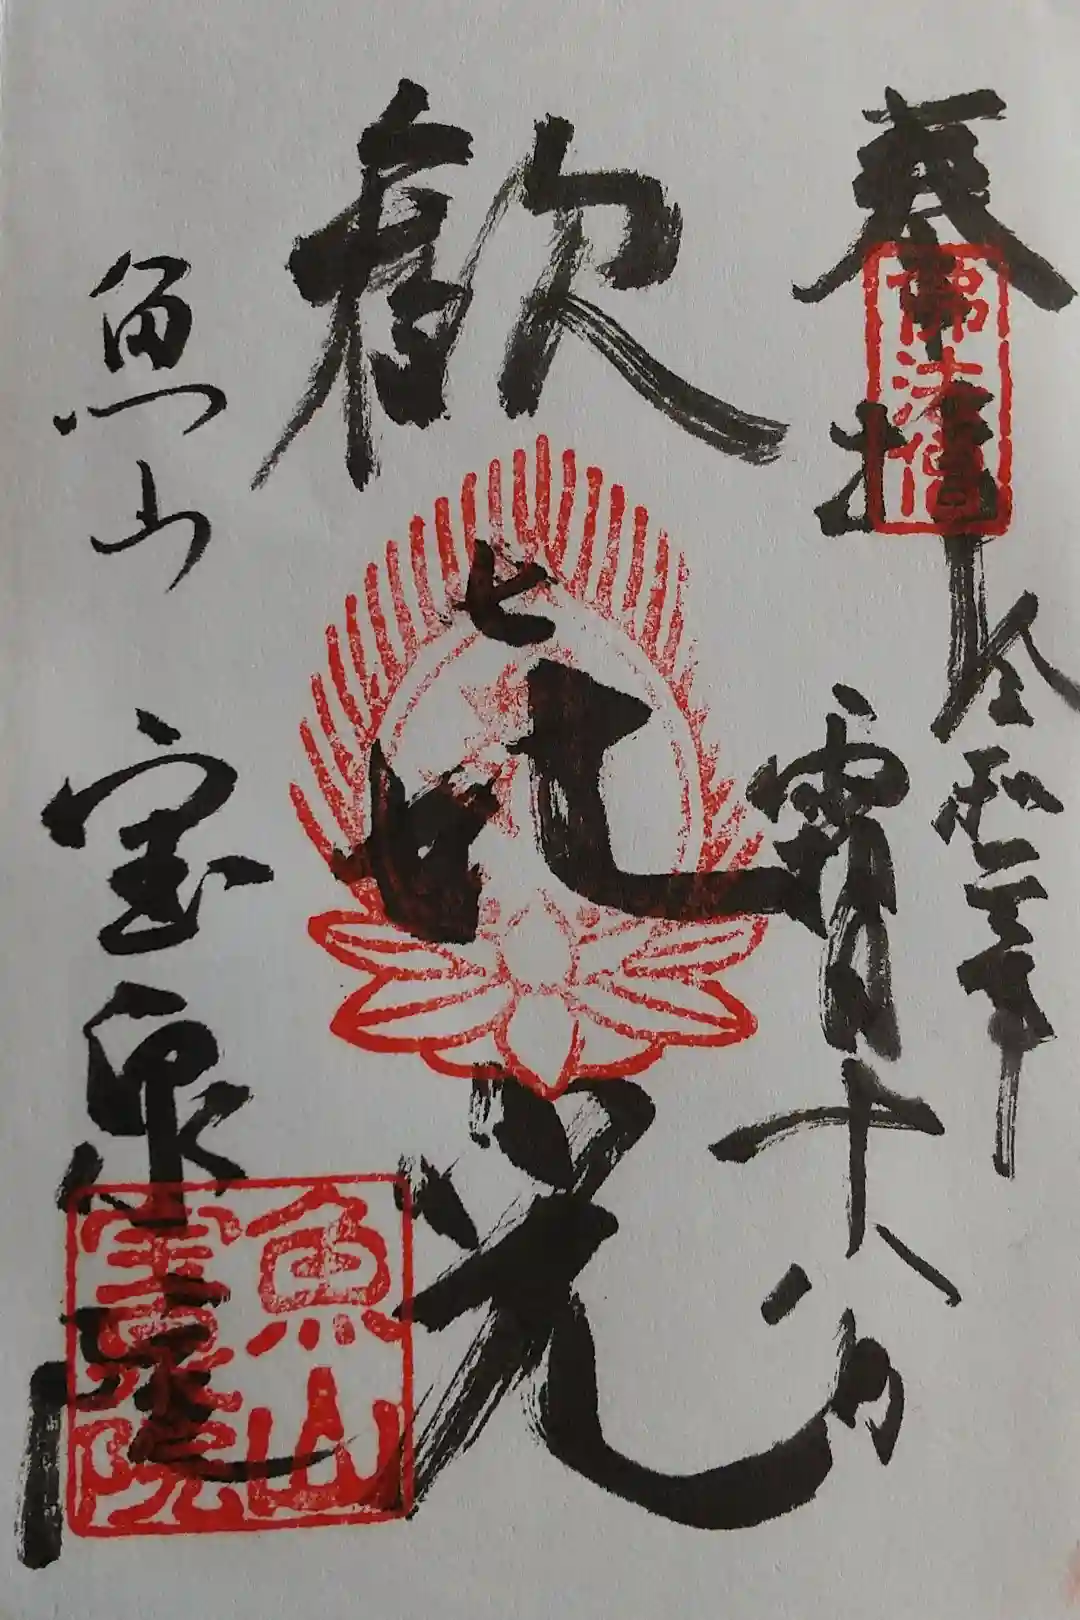 奉拝
佛法僧
令和二年
霜月十八日
歓㐂光
魚山 宝泉院
魚山
寳泉院